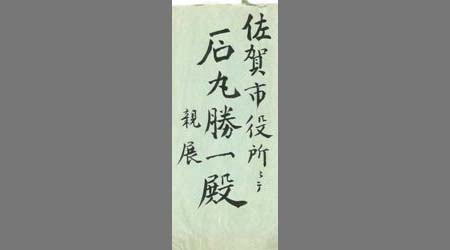 佐賀市役所ニテ
石丸勝一殿
親展